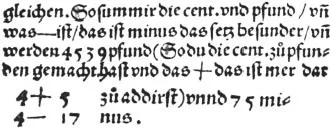 gleichen. So summir die cent. vnd pfund/ vñ
was — ist/ das ist minus das setz besunder/ vñ
werden 4539 pfund (So du die cent. zů pfun-
den gemacht hast vnd das + das ist mer dar
4 + 5 zů addirst) vnnd 75 mi-
4 — 17 nus.